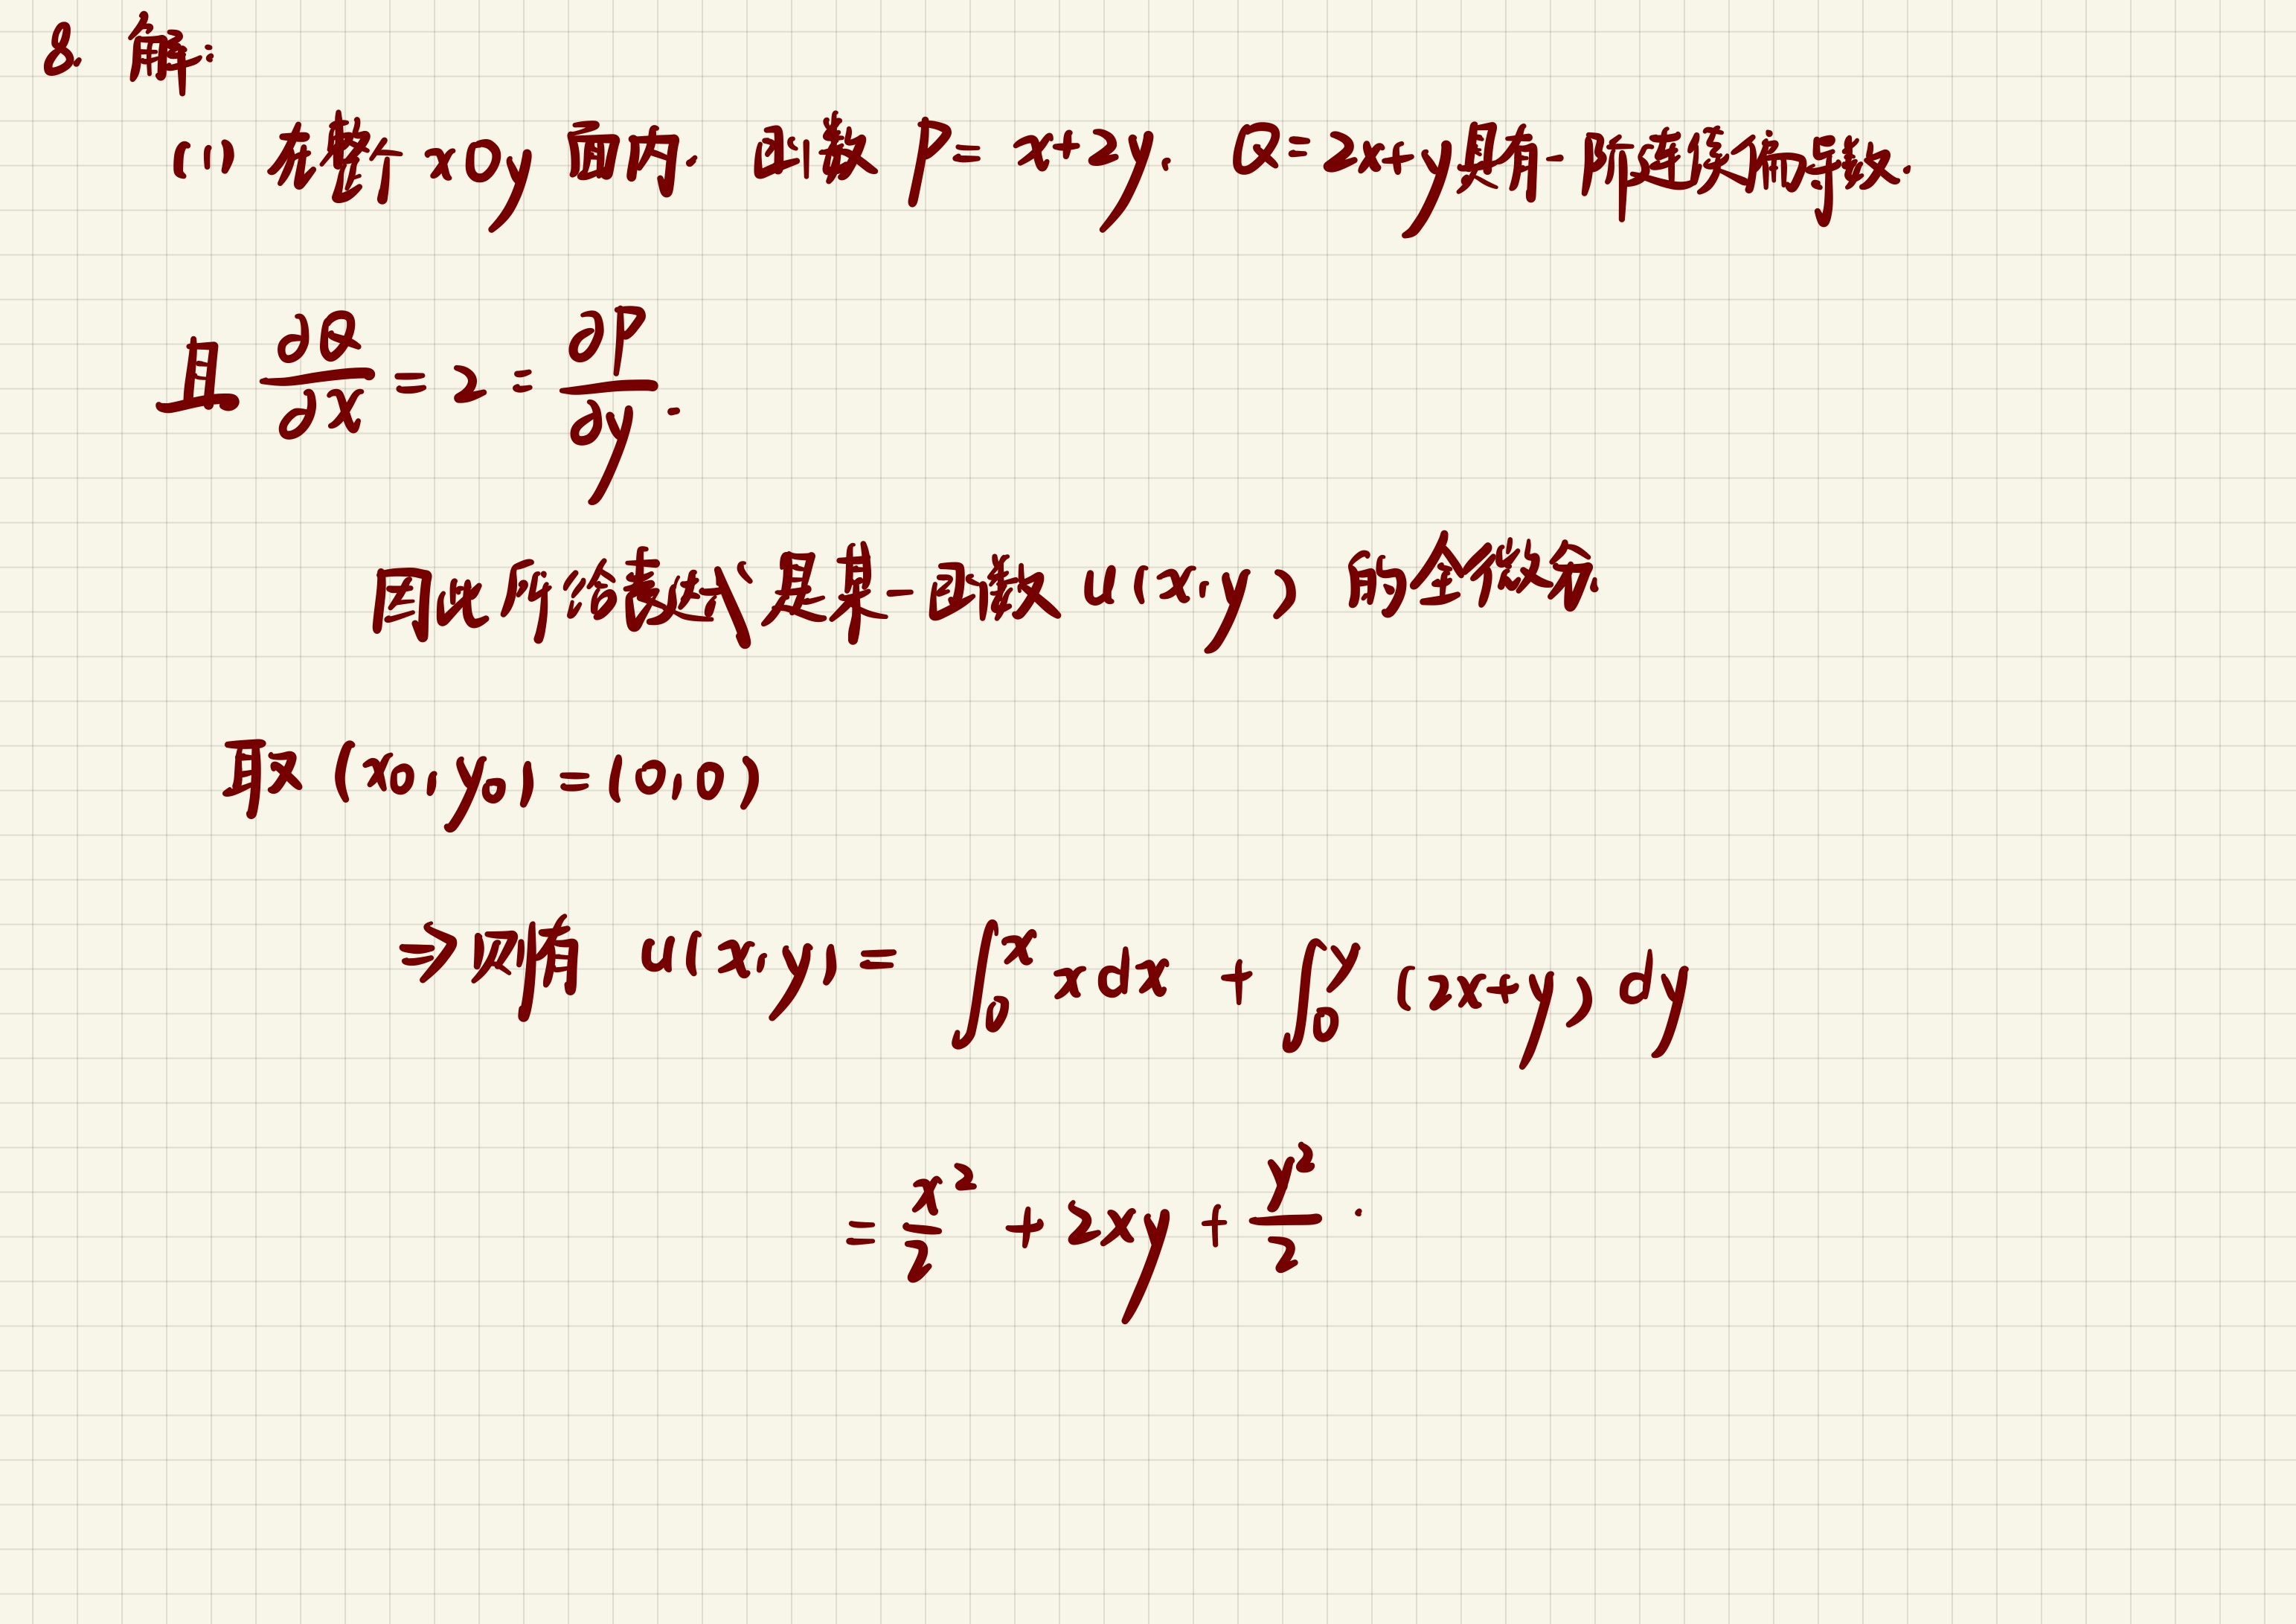 8. 解:
(1) 在整个 xOy 面内, 函数 P = x+2y, Q = 2x+y 具有一阶连续偏导数.
且 ∂Q/∂x = 2 = ∂P/∂y.
因此所给表达式是某一函数 u(x,y) 的全微分.
取 (x₀,y₀) = (0,0)
⇒ 则有 u(x,y) = ∫₀ˣ x dx + ∫₀ʸ (2x+y) dy
= x²/2 + 2xy + y²/2.